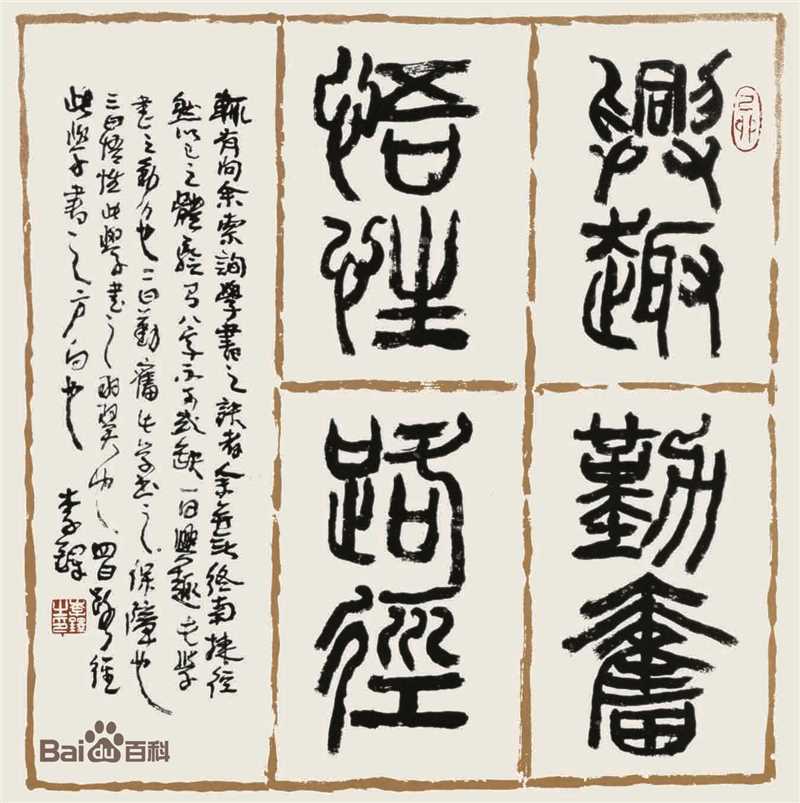 己卯
興趣
勤奮
悟性
路徑
輒有向余索詢學書之訣者余無終南捷徑
然以己之體驗八字不可或缺一曰興趣此學
書之動力也二曰勤奮此學書之保障也
三曰悟性此學書之羽翼也四曰路徑
此學書之方向也
李鐸
李鐸之印
Bai du 百科